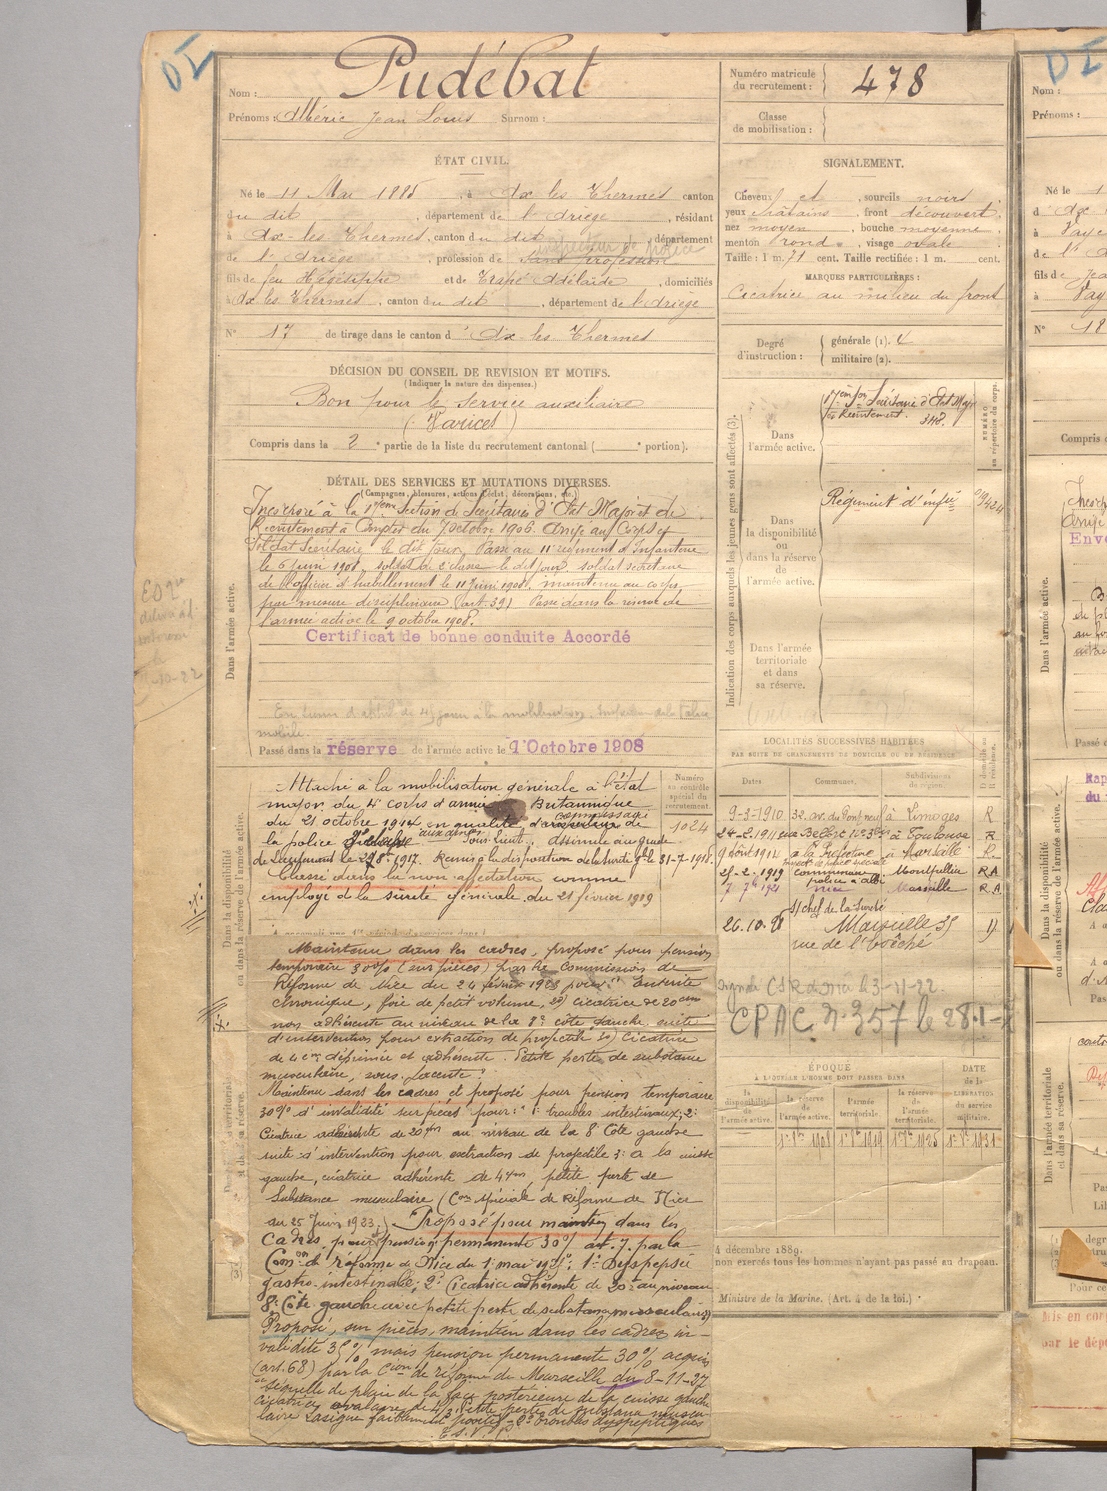 DI
Nom : Pudébat
Prénoms : Albéric Jean Louis Surnom :
ÉTAT CIVIL.
Né le 11 Mai 1885, à Ax les Thermes canton
du dit, département de l'Ariège, résidant
à Ax-les Thermes, canton du dit, département
inspecteur de police
de l'Ariège, profession de sans profession
fils de feu Hégésippe et de Trapé Adélaïde, domiciliés
à Ax les Thermes, canton du dit, département de l'Ariège
N° 17 de tirage dans le canton d'Ax-les Thermes
DÉCISION DU CONSEIL DE REVISION ET MOTIFS.
(Indiquer la nature des dispenses.)
Bon pour le service auxiliaire
(Varices)
Compris dans la 2e partie de la liste du recrutement cantonal ( e portion).
DÉTAIL DES SERVICES ET MUTATIONS DIVERSES.
(Campagnes, blessures, actions d'éclat, décorations, etc.)
Incorporé à la 17eme Section de Secrétaires d'Etat Major et de
Recrutement à compter du 7 octobre 1906. Arrivé au Corps et
Soldat Secrétaire le dit jour. Passé au 11e régiment d'Infanterie
le 6 Juin 1908, soldat de 2e classe le dit jour, soldat secrétaire
de l'officier d'habillement le 11 Juin 1908, maintenu au corps
par mesure disciplinaire (art. 39) Passé dans la réserve de
l'armée active le 9 octobre 1908.
Certificat de bonne conduite Accordé
Dans l'armée active.
mobile.
Passé dans la réserve de l'armée active le 1 Octobre 1908
Numéro au contrôle spécial du recrutement.
1024
Attaché à la mobilisation générale à l'état
major du 4e corps d'armée Britannique
du 21 octobre 1914 en qualité d'inspecteur de
commissaire
la police
Sous-Lieut., assimilé au grade
de Lieutenant le 1917. Remis à la disposition de la sureté gle le 31-7-1918.
Classé dans la non affectation comme
employé de la sûreté générale du 21 février 1919
Dans la disponibilité ou dans la réserve de l'armée active.
Maintenu dans les cadres, proposé pour pension
temporaire 30% (sur pièces) par la Commission de
Réforme de Nice du 24 février 1923 pour 1° Entérite
chronique, foie de petit volume, 2°) cicatrice de 20 cm
non adhérente au niveau de la 8e côte gauche suite
d'intervention pour extraction de projectile 3°) Cicatrice
de 4 cm déprimée et adhérente. Petite perte de substance
musculaire, sous-jacente.
Maintenu dans les cadres et proposé pour pension temporaire
30% d'invalidité sur pièces pour: 1: troubles intestinaux; 2:
Cicatrice adhérente de 20 cm au niveau de la 8e Côte gauche
suite d'intervention pour extraction de projectile 3: à la cuisse
gauche, cicatrice adhérente de 4 cm, petite perte de
Substance musculaire (Con spéciale de Réforme de Nice
du 25 Juin 1923.) Proposé pour maintien dans les
Cadres, pour pension permanente 30% art. 7. par la
Comon de réforme de Nice du 1 mai 1925: 1° Dyspepsie
gastro-intestinale; 2° Cicatrice adhérente de 20 cm au niveau
8e Côte gauche avec petite perte de substance musculaire
Proposé, sur pièces, maintien dans les cadres in-
validité 35% mais pension permanente 30% acquis
(art. 68) par la Cion de réforme de Marseille du 8-11-27
séquelle de plaie de la face postérieure de la cuisse gauche
cicatrice ovalaire de 4/3. Petite perte de substance muscu-
laire Lasègue faiblement positif - 2° troubles dyspeptiques
T.S.V.P.
Numéro matricule du recrutement : 478
Classe de mobilisation :
SIGNALEMENT.
Cheveux et, sourcils noirs
yeux châtains, front découvert
nez moyen, bouche moyenne
menton rond, visage ovale
Taille : 1 m. 71 cent. Taille rectifiée : 1 m. cent.
MARQUES PARTICULIÈRES :
Cicatrice au milieu du front
Degré d'instruction : générale (1).
militaire (2).
Indication des corps auxquels les jeunes gens sont affectés (3).
NUMÉRO au répertoire du corps.
Dans l'armée active.
17eme Son Secrétaires d'Etat Major
et Recrutement. 342.
Dans la disponibilité ou dans la réserve de l'armée active.
Régiment d'infie
Dans l'armée territoriale et dans sa réserve.
LOCALITÉS SUCCESSIVES HABITÉES
PAR SUITE DE CHANGEMENTS DE DOMICILE OU DE RÉSIDENCE
Dates. Communes. Subdivisions de région.
9-3-1910 32, av. du Pont neuf à Limoges R
24-2-1911 à Toulouse R
9 août 1914 à la Préfecture à Marseille R.
25-2-1919 commissaire police à Albi Montpellier RA
7 7bre 1921 Nice Marseille R.A
s/chef de la Sureté
26.10.28 Marseille 35 D
rue de l'évêché
CPAC n° 357 le 28-1-
ÉPOQUE
À LAQUELLE L'HOMME DOIT PASSER DANS
la disponibilité de l'armée active. la réserve de l'armée active. l'armée territoriale. la réserve de l'armée territoriale.
DATE de la LIBÉRATION du service militaire.
1er 8bre 1908 1er 8bre 1919 1er 8bre 1925 1er 8bre 1931
4 décembre 1889.
non exercés tous les hommes n'ayant pas passé au drapeau.
Ministre de la Marine. (Art. 4 de la loi.)
DI
Nom :
Prénoms :
Né le 1
N° 18
Compris
Dans l'armée active.
Passé